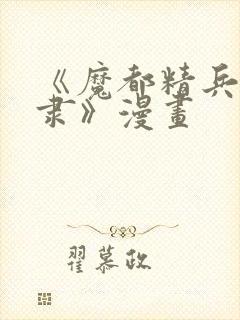 《魔都精兵
隶》漫畫
翟慕政